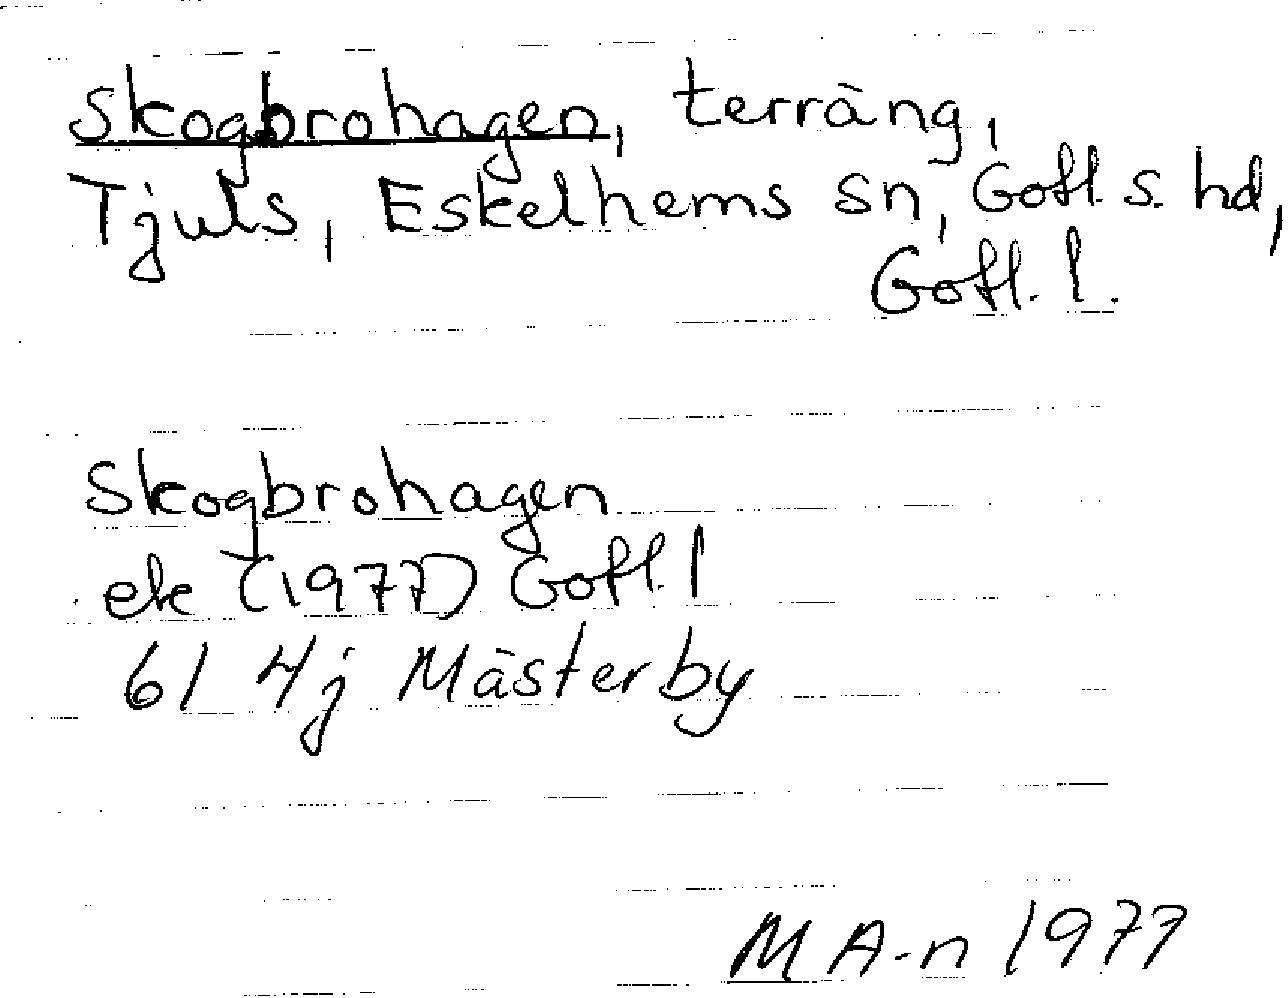 Skogbrohagen, terräng,
Tjuls, Eskelhems sn, Gotl. s. hd,
Gotl. l.
Skogbrohagen
ek (1977) Gotl. l
6I 4j Mästerby
M A-n 1977